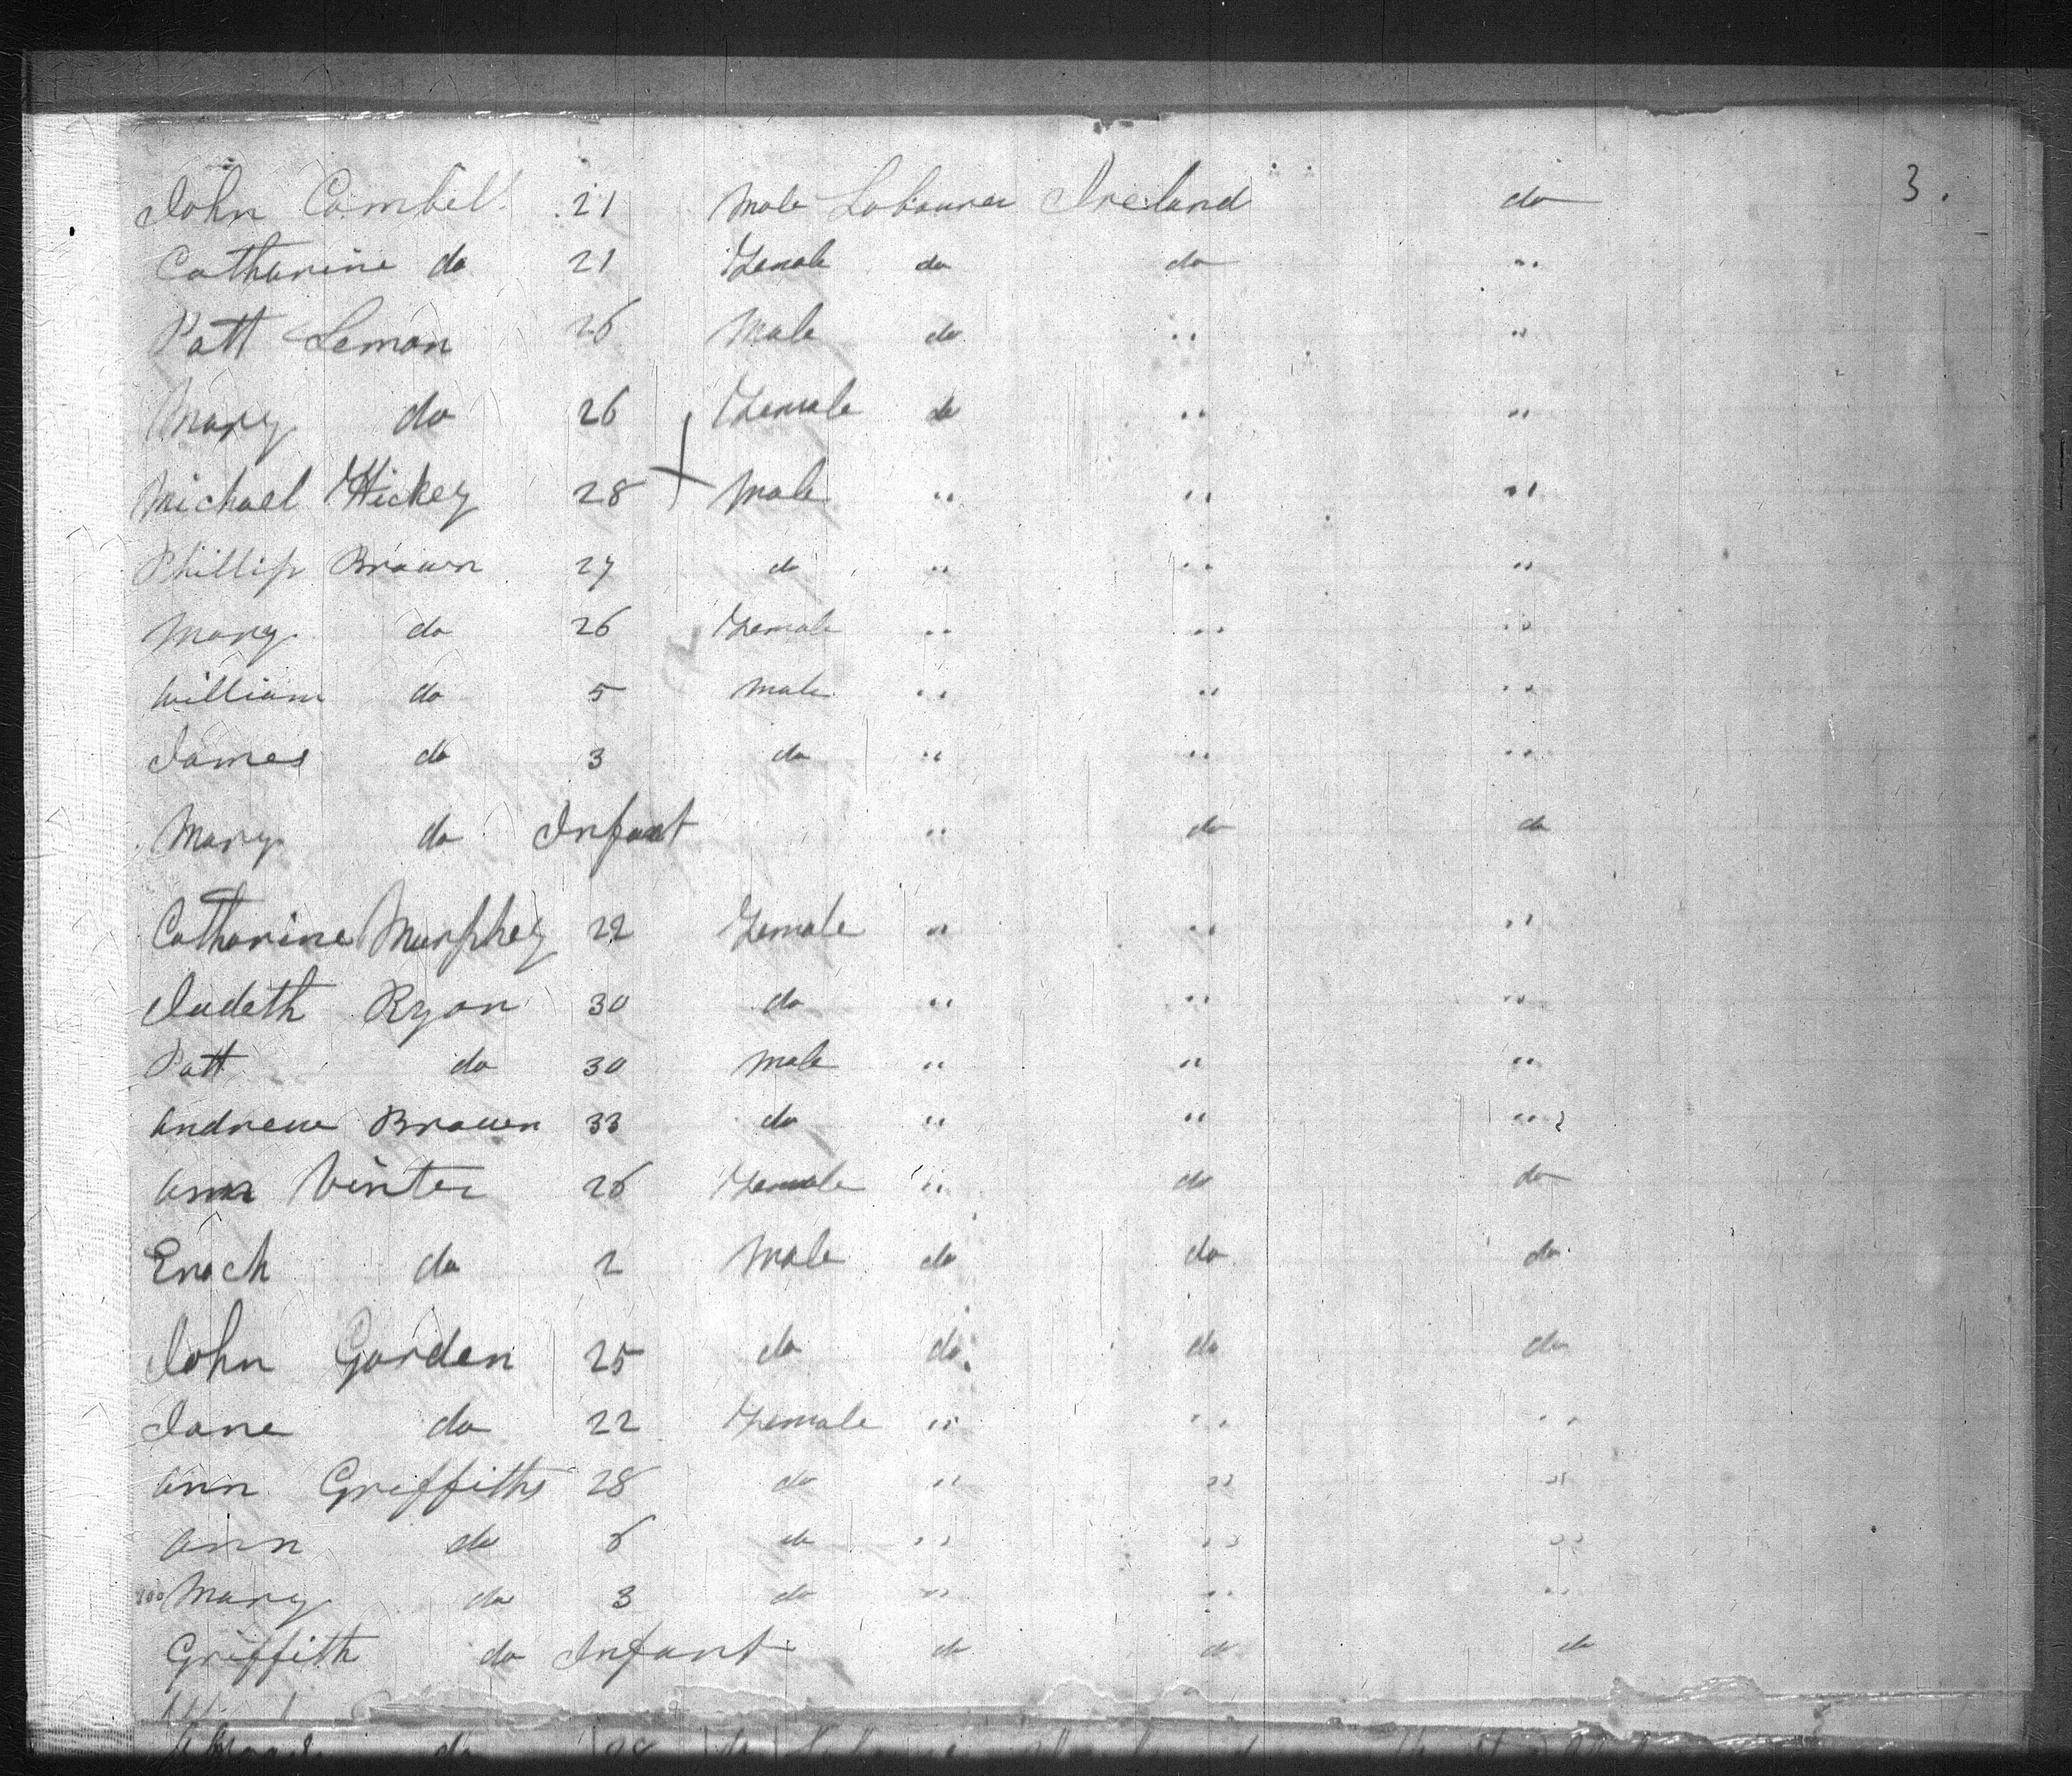 John Cambell 21 Male Labourer Ireland do 3.
Catharine do 21 Female do do "
Patt Lemon 26 Male do " "
Mary do 26 Female do " "
Michael Hickey 28 Male " " "
Phillip Brown 27 do " " "
Mary do 26 Female " " "
William do 5 Male " " "
James do 3 do " " "
Mary do Infant " do do
Catharine Murphey 22 Female " " "
Judeth Ryan 30 do " " "
Patt do 30 Male " " "
Andrew Brown 33 do " " "
Ann Winter 26 Female " do do
Enoch do 2 Male do do do
John Gorden 25 do do do do
Jane do 22 Female " " "
Ann Griffiths 28 do " " "
Ann do 6 do " " "
Mary do 3 do " " "
Griffith do Infant do do do